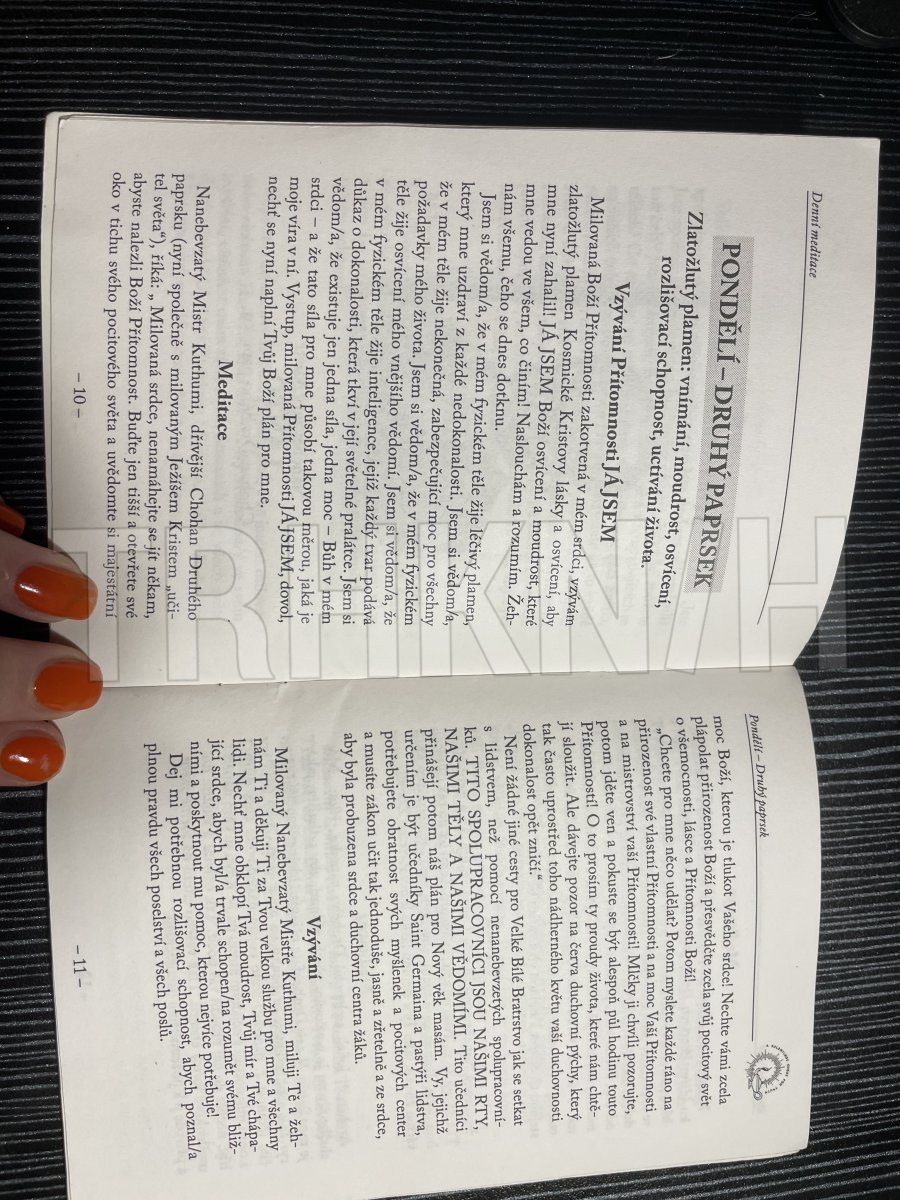 Denní meditace
PONDĚLÍ – DRUHÝ PAPRSEK
Zlatožlutý plamen: vnímání, moudrost, osvícení,
rozlišovací schopnost, uctívání života.
Vzývání Přítomnosti JÁ JSEM
Milovaná Boží Přítomnosti zakotvená v mém srdci, vzývám
zlatožlutý plamen Kosmické Kristovy lásky a osvícení, aby
mne nyní zahalil! JÁ JSEM Boží osvícení a moudrost, které
mne vedou ve všem, co činím! Naslouchám a rozumím. Žeh-
nám všemu, čeho se dnes dotknu.
Jsem si vědom/a, že v mém fyzickém těle žije léčivý plamen,
který mne uzdraví z každé nedokonalosti. Jsem si vědom/a,
že v mém těle žije nekonečná, zabezpečující moc pro všechny
požadavky mého života. Jsem si vědom/a, že v mém fyzickém
těle žije osvícení mého vnějšího vědomí. Jsem si vědom/a, že
v mém fyzickém těle žije inteligence, jejíž každý tvar podává
důkaz o dokonalosti, která tkví v její světelné pralátce. Jsem si
vědom/a, že existuje jen jedna síla, jedna moc – Bůh v mém
srdci – a že tato síla pro mne působí takovou měrou, jaká je
moje víra v ní. Vystup, milovaná Přítomnosti JÁ JSEM, dovol,
nechť se nyní naplní Tvůj Boží plán pro mne.
Meditace
Nanebevzatý Mistr Kuthumi, dřívější Chohan Druhého
paprsku (nyní společně s milovaným Ježíšem Kristem „uči-
tel světa“), říká: „ Milovaná srdce, nenamáhejte se jít někam,
abyste nalezli Boží Přítomnost. Buďte jen tišší a otevřete své
oko v tichu svého pocitového světa a uvědomte si majestátní
– 10 –
Pondělí – Druhý paprsek
moc Boží, kterou je tlukot Vašeho srdce! Nechte vámi zcela
plápolat přirozenost Boží a přesvědčte zcela svůj pocitový svět
o všemocnosti, lásce a Přítomnosti Boží!
„Chcete pro mne něco udělat? Potom myslete každé ráno na
přirozenost své vlastní Přítomnosti a na moc Vaší Přítomnosti
a na mistrovství vaší Přítomnosti! Mlčky ji chvíli pozorujte,
potom jděte ven a pokuste se být alespoň půl hodinu touto
Přítomností! O to prosím ty proudy života, které nám chtě-
jí sloužit. Ale dávejte pozor na červa duchovní pýchy, který
tak často uprostřed toho nádherného květu vaší duchovnosti
dokonalost opět zničí.“
Není žádné jiné cesty pro Velké Bílé Bratrstvo jak se setkat
s lidstvem, než pomocí nenanebevzetých spolupracovní-
ků. TITO SPOLUPRACOVNÍCI JSOU NAŠIMI RTY,
NAŠIMI TĚLY A NAŠIMI VĚDOMÍMI. Tito učedníci
přinášejí potom náš plán pro Nový věk masám. Vy, jejichž
určením je být učedníky Saint Germaina a pastýři lidstva,
potřebujete obratnost svých myšlenek a pocitových center
a musíte zákon učit tak jednoduše, jasně a zřetelně a ze srdce,
aby byla probuzena srdce a duchovní centra žáků.
Vzývání
Milovaný Nanebevzatý Mistře Kuthumi, miluji Tě a žeh-
nám Ti a děkuji Ti za Tvou velkou službu pro mne a všechny
lidi. Nechť mne obklopí Tvá moudrost, Tvůj mír a Tvé chápa-
jící srdce, abych byl/a trvale schopen/na rozumět svému bliž-
nímu a poskytnout mu pomoc, kterou nejvíce potřebuje!
Dej mi potřebnou rozlišovací schopnost, abych poznal/a
plnou pravdu všech poselství a všech poslů.
– 11 –
TRHKNIH